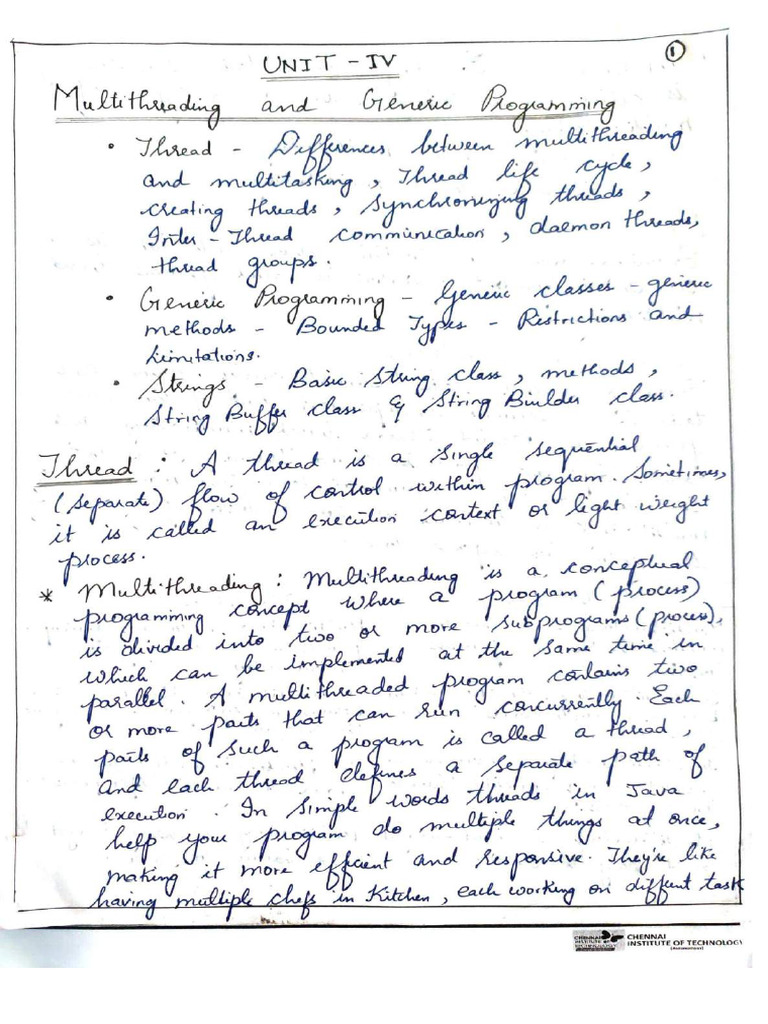 1
UNIT - IV
Multithreading and Generic Programming
• Thread - Differences between multithreading
and multitasking, Thread life cycle,
creating threads, synchronizing threads,
Inter - Thread communication, daemon threads,
thread groups.
• Generic Programming - Generic classes - generic
methods - Bounded Types - Restrictions and
Limitations.
• Strings - Basic String class, methods,
String Buffer class & String Builder class.
Thread : A thread is a single sequential
(separate) flow of control within program. Sometimes,
it is called an execution context or light weight
process.
* Multithreading : Multithreading is a conceptual
programming concept where a program (process)
is divided into two or more subprograms (process),
which can be implemented at the same time in
parallel. A multithreaded program contains two
or more parts that can run concurrently. Each
parts of such a program is called a thread,
and each thread defines a separate path of
execution. In simple words threads in Java
help your program do multiple things at once,
making it more efficient and responsive. They're like
having multiple chefs in kitchen, each working on diffent task
CHENNAI
INSTITUTE OF TECHNOLOGY
(Autonomous)